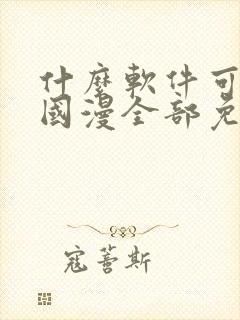 什麼軟件可
國漫全部免
寇蒈斯